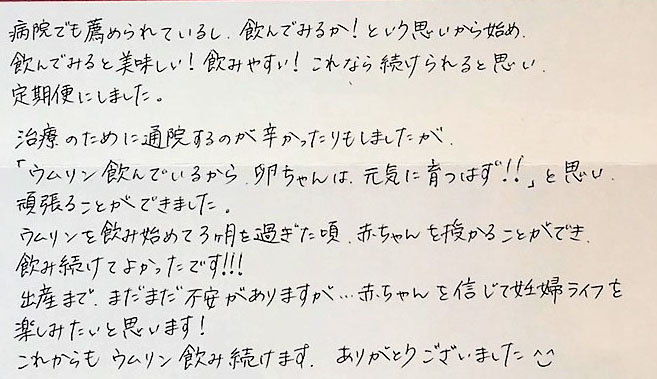 病院でも薦められているし、飲んでみるか！という思いから始め、
飲んでみると美味しい！飲みやすい！これなら続けられると思い、
定期便にしました。
治療のために通院するのが辛かったりもしましたが、
「ウムリン飲んでいるから、卵ちゃんは、元気に育つはず!!」と思い、
頑張ることができました。
ウムリンを飲み始めて3ヶ月を過ぎた頃、赤ちゃんを授かることができ、
飲み続けてよかったです!!!
出産まで、まだまだ不安がありますが…赤ちゃんを信じて妊婦ライフを
楽しみたいと思います！
これからもウムリン飲み続けます。ありがとうございました